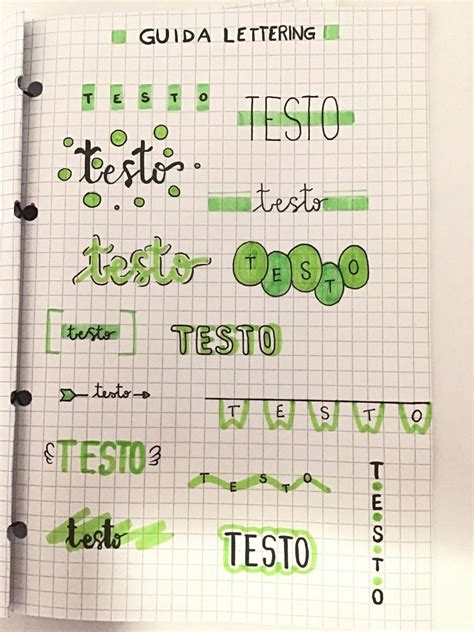 GUIDA LETTERING
TESTO
TESTO
testo
testo
testo
TESTO
testo
TESTO
testo
TESTO
TESTO
TESTO
TESTO
testo
TESTO